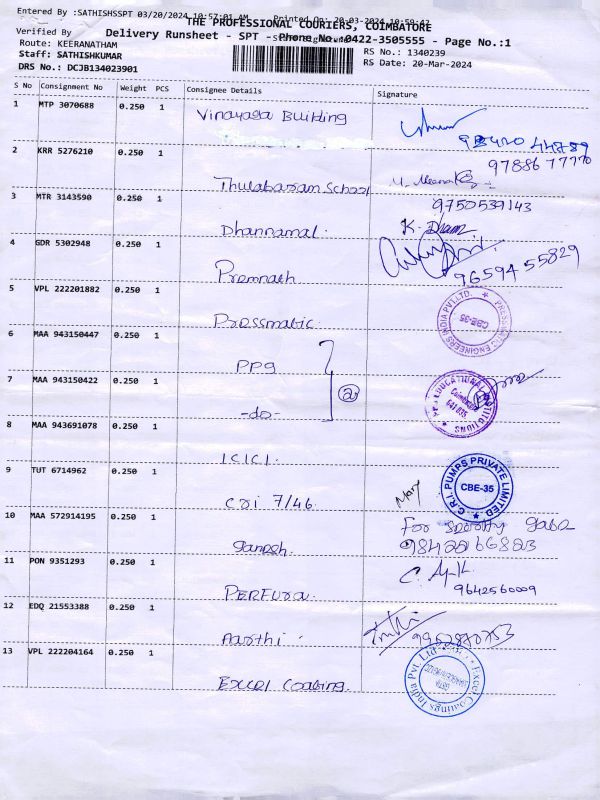 Entered By :SATHISHSSPT 03/20/2024 10:57:01 AM Printed On: 20-03-2024 10:59:42
THE PROFESSIONAL COURIERS, COIMBATORE
Verified By
Delivery Runsheet - SPT - Phone No.:0422-3505555 - Page No.:1
Route: KEERANATHAM
RS No.: 1340239
Staff: SATHISHKUMAR
RS Date: 20-Mar-2024
DRS No.: DCJB134023901
S No Consignment No Weight PCS Consignee Details Signature
1 MTP 3070688 0.250 1 Vinayaga Building
2 KRR 5276210 0.250 1 Thulabaram School
9788677770
3 MTR 3143590 0.250 1 Dhannamal.
9750539143
4 GDR 5302948 0.250 1 Premnath
9659455829
5 VPL 222201882 0.250 1 Pressmatic
CBE-35
6 MAA 943150447 0.250 1 PPg
7 MAA 943150422 0.250 1 -do-
2
8 MAA 943691078 0.250 1 ICICI.
9 TUT 6714962 0.250 1 Cri 7/46
Mary
C.R.I. PUMPS PRIVATE LIMITED
CBE-35
10 MAA 572914195 0.250 1 Ganesh.
For
11 PON 9351293 0.250 1 PERFura.
9642560009
12 EDQ 21553388 0.250 1 Aarthi
9952870753
13 VPL 222204164 0.250 1 Excel Coating.
Excel Coatings India Pvt. Ltd.